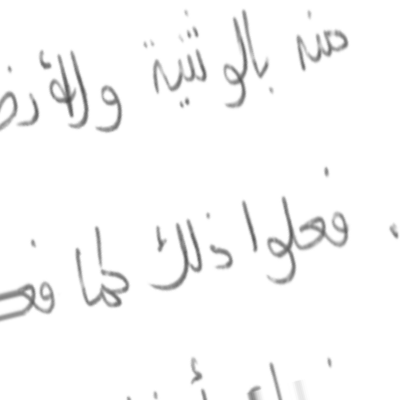 منه بالوثنية ولأرض
. فعلوا ذلك كما فعـ